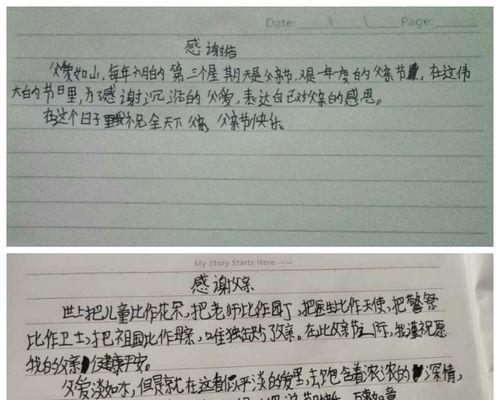 Date: \ \ Page:
感谢信
父爱如山,每年六月的第三个星期天是父亲节,又是一年度的父亲节,在这伟
大的节日里,为了感谢沉淀的父爱,表达自己对父亲的感恩。
在这个日子里我祝全天下父亲,父亲节快乐。
My Story Starts Here
感谢父亲
世上把儿童比作花朵,把老师比作园丁,把医生比作天使,把警察
比作卫士,把祖国比作母亲,唯独缺少了父亲。在此父亲节之际,我谨祝愿
我的父亲健康平安。
父爱淡如水,但是就在这看似平淡的爱里,却包含着浓浓的深情,